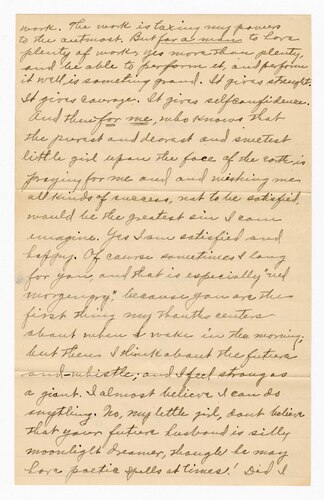 work. The work is taxing my powers
to the autmost. But for a man to have
plenty of work, yes more than plenty,
and be able to perform it, and perform
it well is something grand. It gives strenght.
It gives courage. It gives selfconfidence.
And then for me, who knows that
the purest and dearest and swetest
little girl upon the face of the earth is
praying for me and and wishing me
all kinds of success, not to be satisfied,
would be the greatest sin I can
imagine. Yes I am satisfied and
happy. Of course sometimes I long
for you, and that is especially "ved
morgengry," because you are the
first thing my thauths centers
about when I wake in the morning;
but then I think about the future
and whistle; and I feel strong as
a giant. I almost believe I can do
anything. No, my little girl, dont believe
that your future husband is silly
moonlight dreamer, though he may
have poetic spells at times! Did I